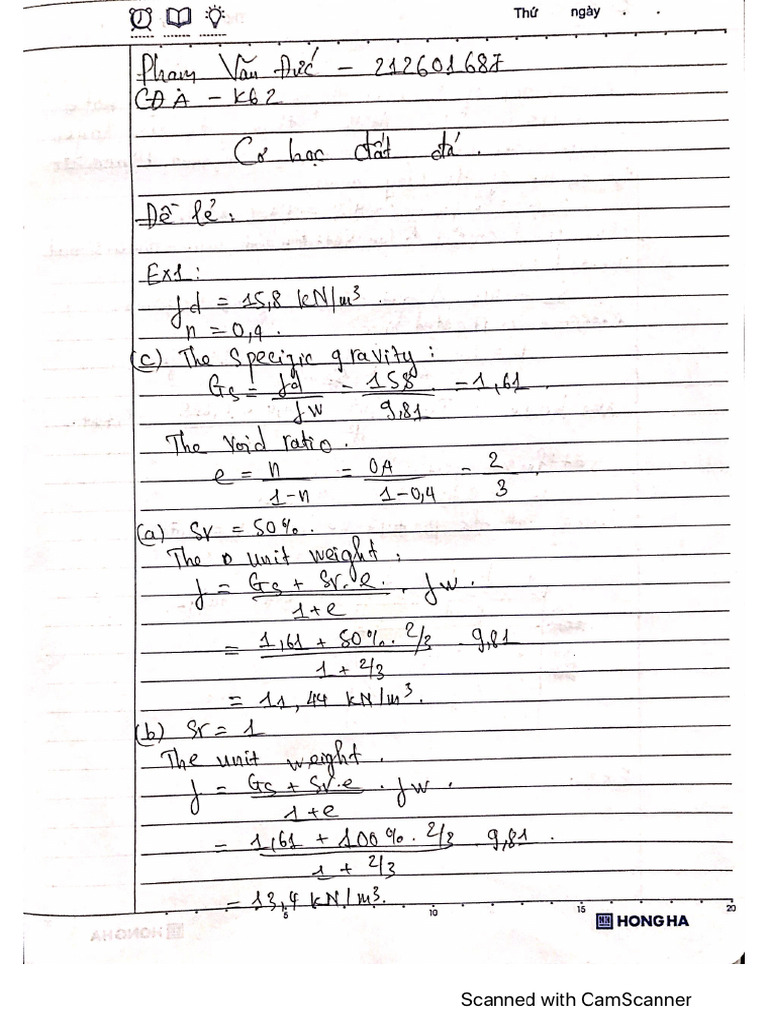 Thứ ngày . .
Phạm Văn Đức – 212601687
CĐA – K62
Cơ học đất đá.
Đề lẻ:
Ex1:
γd = 15,8 kN/m³
n = 0,4.
(c) The specizic gravity:
Gs = γd / γw = 15,8 / 9,81 = 1,61.
The void ratio.
e = n / 1-n = 0,4 / 1-0,4 = 2 / 3.
(a) Sr = 50%.
The unit weight,
γ = Gs + Sr.e / 1+e . γw.
= 1,61 + 50%. 2/3 / 1 + 2/3 . 9,81
= 11,44 kN/m³.
(b) Sr = 1
The unit weight.
γ = Gs + Sr.e / 1+e . γw.
= 1,61 + 100%. 2/3 / 1 + 2/3 . 9,81.
= 13,4 kN/m³.
5 10 15 20
HONG HA
Scanned with CamScanner